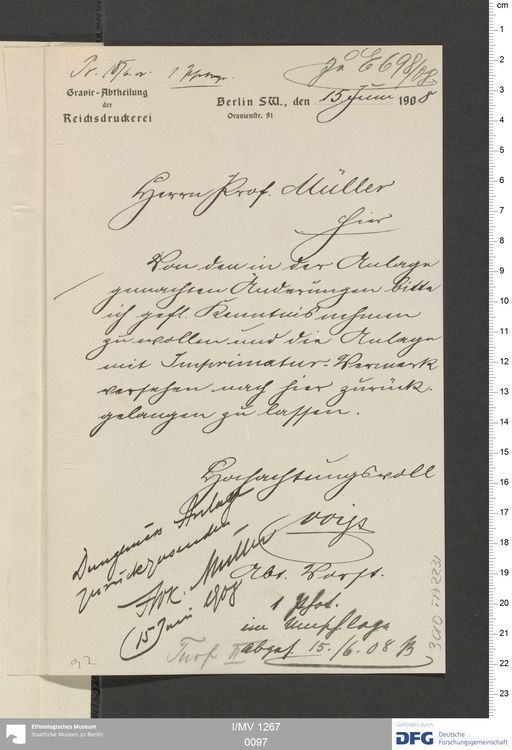 Pr. 15/6. 08. 1 Photogr.
Zu E 698/08
Gravir-Abtheilung
der
Reichsdruckerei
Berlin SW., den 15 Juni 1908
Oranienstr. 91
Herrn Prof. Müller
Hier
Von den in der Anlage
gemachten Änderungen bitte
ich gefl. Kenntnis nehmen
zu wollen und die Anlage
mit Imprimatur-Vermerk
versehen nach hier zurück-
gelangen zu lassen.
Hochachtungsvoll
Voigt
Abt. Vorst.
Anlage
zurückzusenden
Müller
(15 Juni 1908
1 Phot.
im Umschlage
abges. 15./6. 08
Turf
92
cm
1
2
3
4
5
6
7
8
9
10
11
12
13
14
15
16
17
18
19
20
21
22
23
Ethnologisches Museum
Staatliche Museen zu Berlin
I/MV 1267
0097
Gefördert durch
DFG Deutsche
Forschungsgemeinschaft